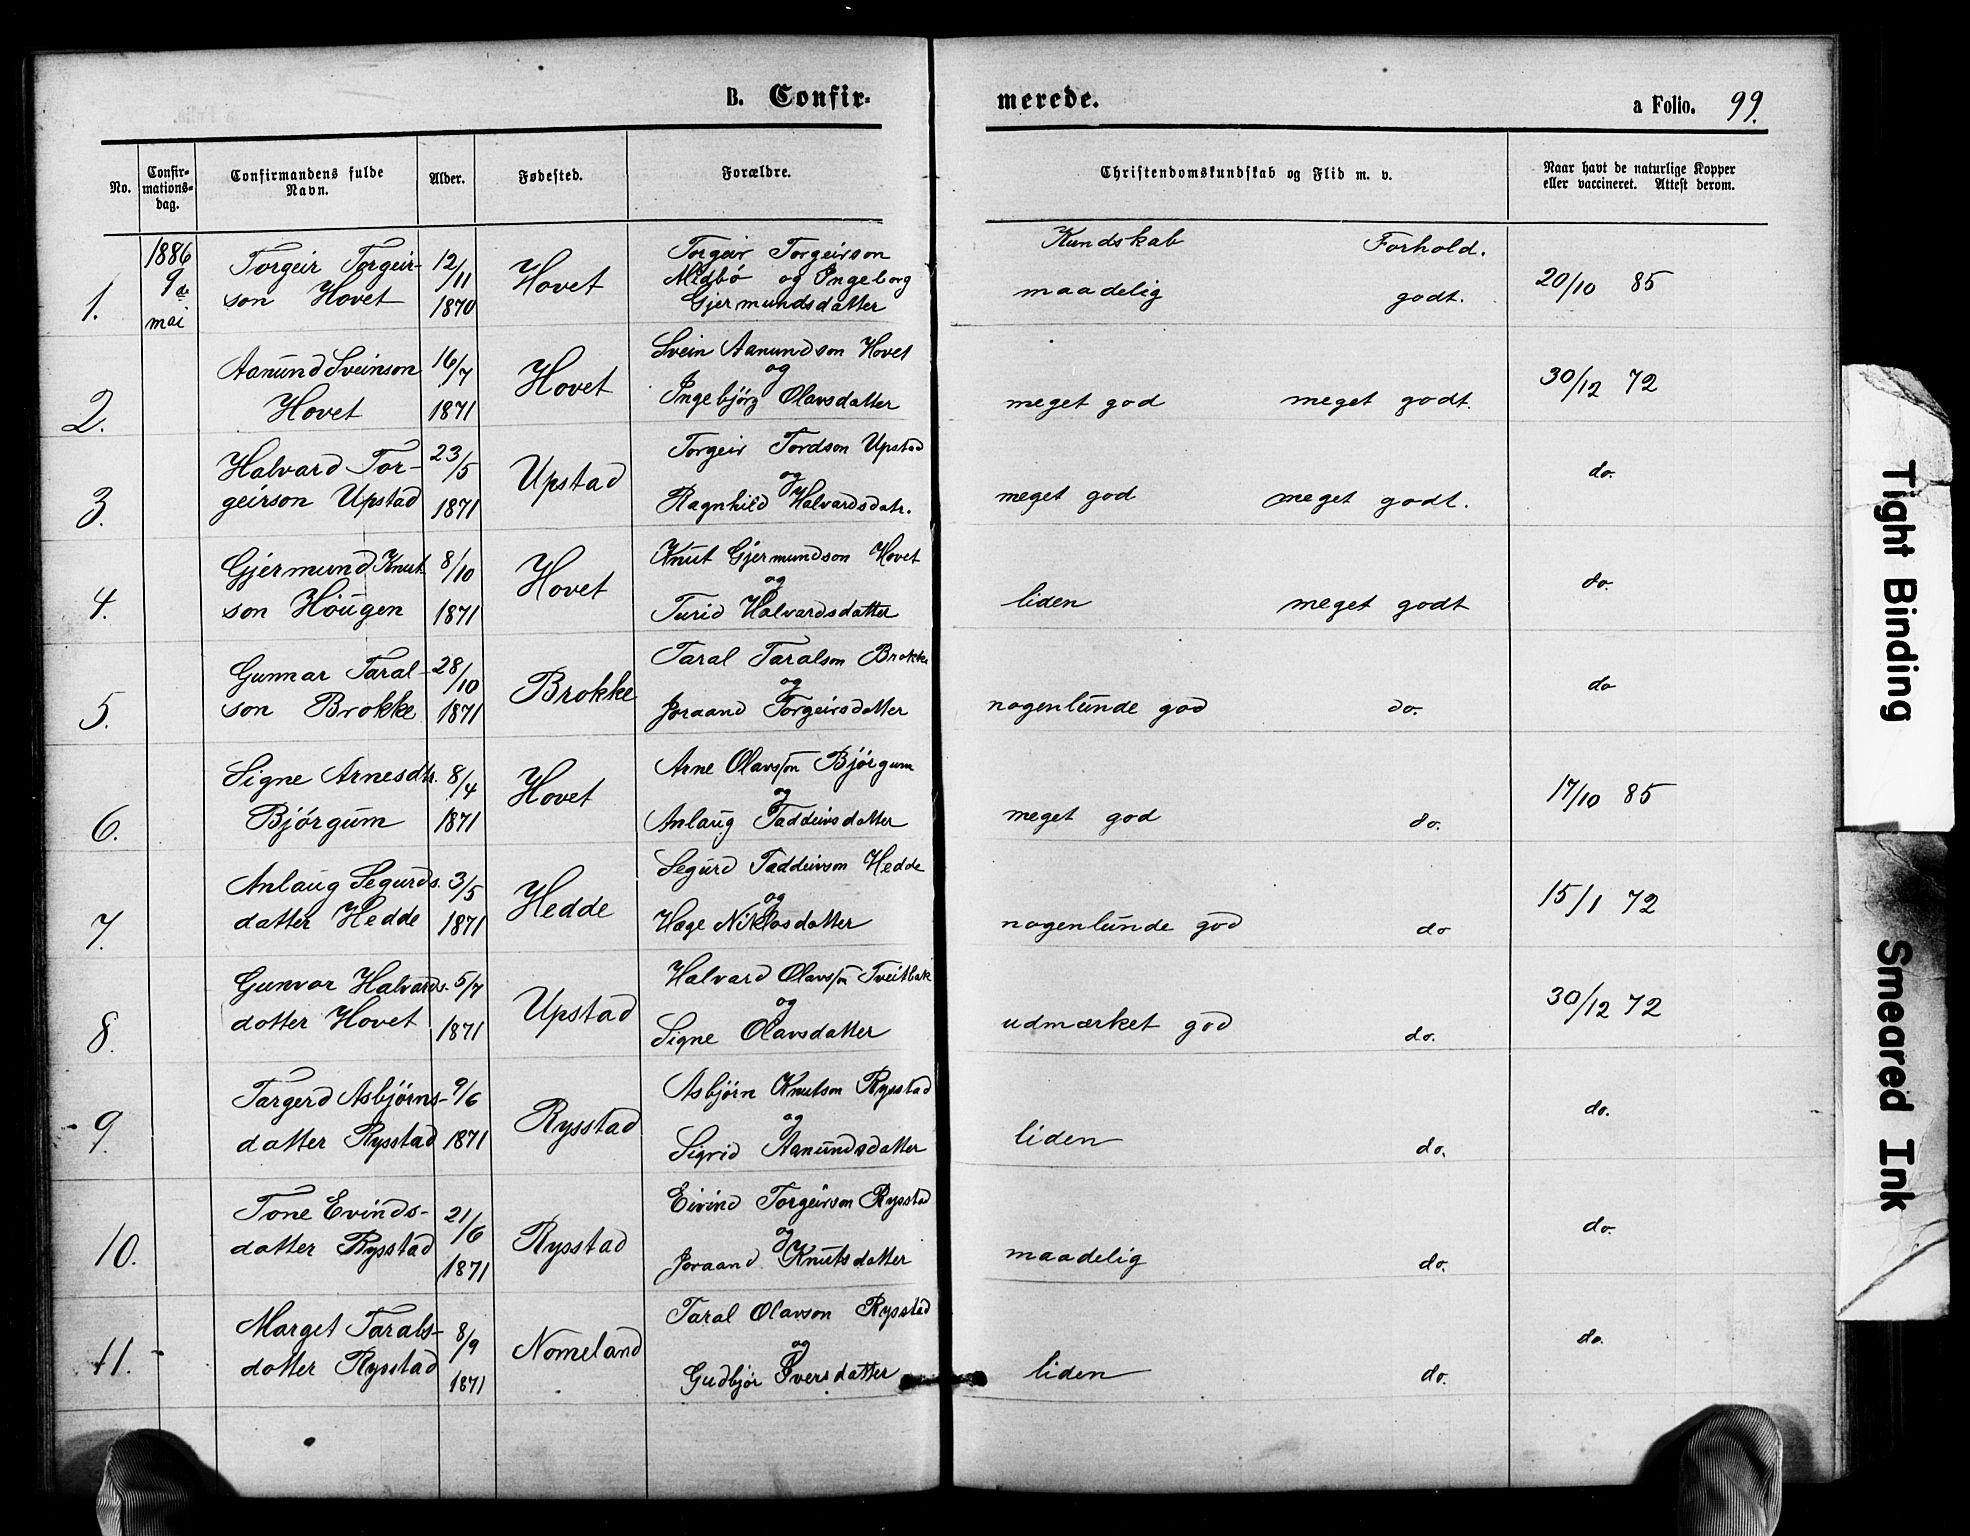 B. Confir-
merede.
a Folio. 99.
No.
Confir-
mations-
dag.
Confirmandens fulde
Navn.
Alder.
Fødested.
Forældre.
Christendomskundskab og Flid m. v.
Naar havt de naturlige Kopper
eller vaccineret. Attest derom.
Kundskab Forhold.
1.
1886
9de
mai
Torgeir Torgeir-
son Hovet
12/11
1870
Hovet
Torgeir Torgeirson
Midbö og Ingeborg
Gjermundsdatter
maadelig godt.
20/10 85
2.
Aanund Sveinson
Hovet
16/7
1871
Hovet
Svein Aanundson Hovet
og
Ingebjörg Olavsdatter
meget god meget godt.
30/12 72
3.
Halvard Tor-
geirson Upstad
23/5
1871
Upstad
Torgeir Tordson Upstad
og
Ragnhild Halvardsdatr.
meget god meget godt.
do.
4.
Gjermund Knut-
son Höugen
8/10
1871
Hovet
Knut Gjermundson Hovet
og
Turid Halvardsdatter
liden meget godt
do.
5.
Gunnar Taral-
son Brokke
28/10
1871
Brokke
Taral Taralson Brokke
og
Joraand Torgeirsdatter
nogenlunde god do.
do
6.
Signe Arnesdtr.
Björgum
8/4
1871
Hovet
Arne Olavsson Björgum
og
Anlaug Taddeivsdatter
meget god do.
17/10 85
7.
Anlaug Segurds.
datter Hedde
3/5
1871
Hedde
Segurd Taddeivson Hedde
og
Hæge Niklosdatter
nogenlunde god do
15/1 72
8.
Gunvor Halvards-
datter Hovet
5/7
1871
Upstad
Halvard Olavsson Tveitbak
og
Signe Olavsdatter
udmærket god do.
30/12 72
9.
Targerd Asbjörns-
datter Rysstad
9/6
1871
Rysstad
Asbjörn Knutson Rysstad
og
Sigrid Aanundsdatter
liden do.
do.
10.
Tone Evinds-
datter Rysstad
21/6
1871
Rysstad
Eivind Torgeirson Rysstad
og
Joraand Knutsdatter
maadelig do.
do.
11.
Marget Tarals-
datter Rysstad
8/9
1871
Nomeland
Taral Olavson Rysstad
og
Gudbjör Iversdatter
liden do.
do.
Tight Binding
Smeared Ink